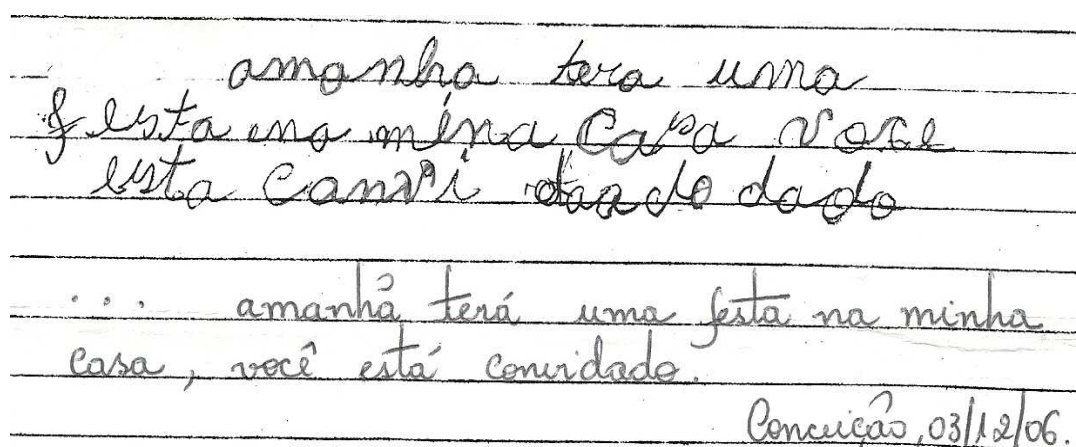 amanha tera uma
festa ena mina casa voce
esta canvi dado
... amanhã terá uma festa na minha
casa, você está convidado.
Conceição, 03/12/06.